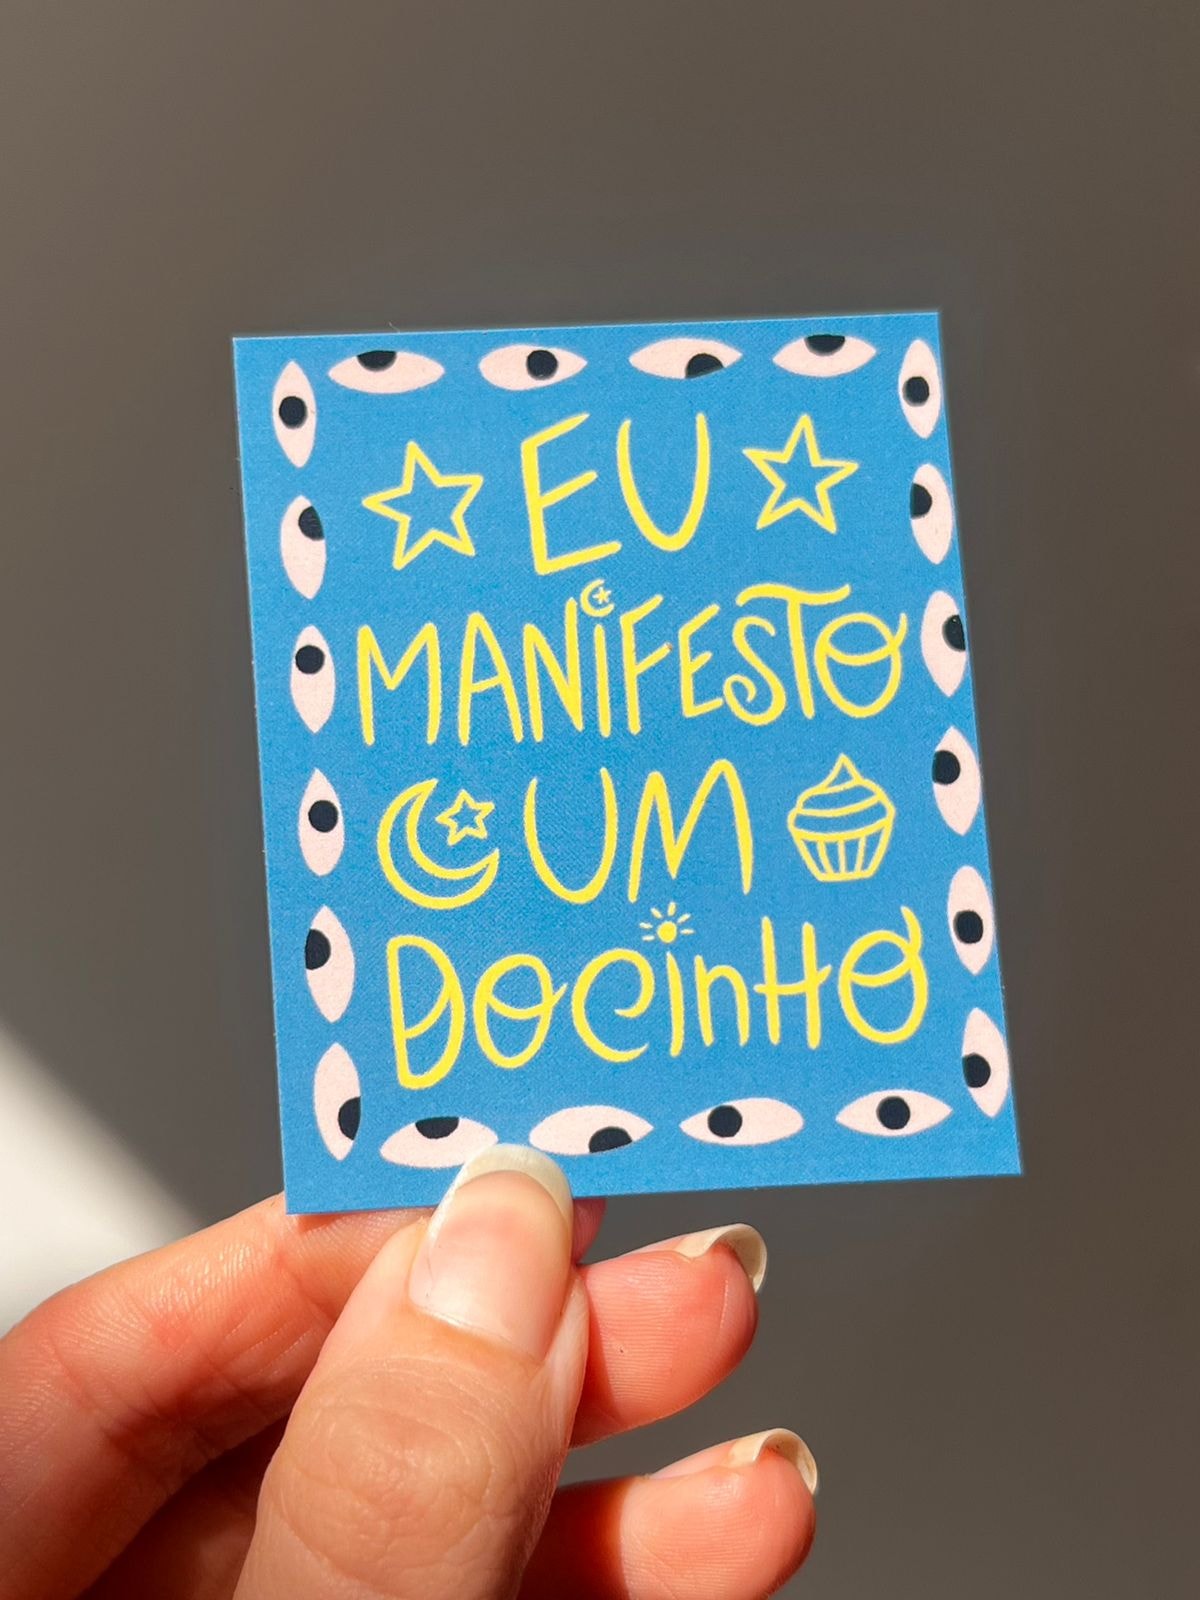 EU
MANiFESTO
UM
DOCinHO